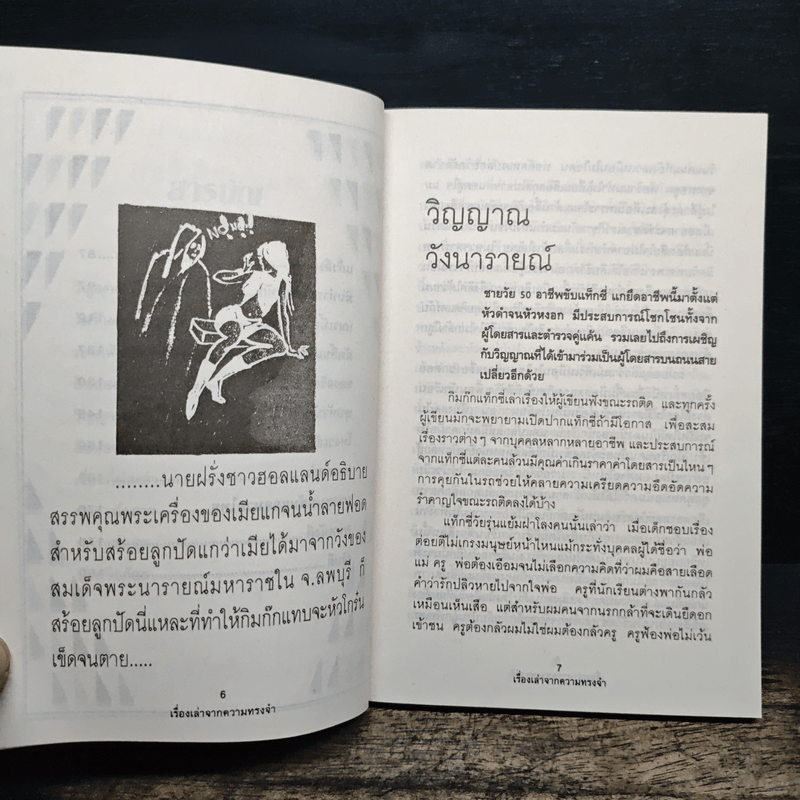 ........นายฝรั่งชาวฮอลแลนด์อธิบาย
สรรพคุณพระเครื่องของเมียแกจนน้ำลายฟอด
สำหรับสร้อยลูกปัดแกว่าเมียได้มาจากวังของ
สมเด็จพระนารายณ์มหาราชใน จ.ลพบุรี ก็
สร้อยลูกปัดนี่แหละที่ทำให้กิมก๊กแทบจะหัวโกร๋น
เข็ดจนตาย.....
6
เรื่องเล่าจากความทรงจำ
วิญญาณ
วังนารายณ์
ชายวัย 50 อาชีพขับแท็กซี่ แกยึดอาชีพนี้มาตั้งแต่
หัวดำจนหัวหงอก มีประสบการณ์โชกโชนทั้งจาก
ผู้โดยสารและตำรวจคู่แค้น รวมเลยไปถึงการเผชิญ
กับวิญญาณที่ได้เข้ามาร่วมเป็นผู้โดยสารบนถนนสาย
เปลี่ยวอีกด้วย
กิมก๊กแท็กซี่เล่าเรื่องให้ผู้เขียนฟังขณะรถติด และทุกครั้ง
ผู้เขียนมักจะพยายามเปิดปากแท็กซี่ถ้ามีโอกาส เพื่อสะสม
เรื่องราวต่างๆ จากบุคคลหลากหลายอาชีพ และประสบการณ์
จากแท็กซี่แต่ละคนล้วนมีคุณค่าเกินราคาค่าโดยสารเป็นไหนๆ
การคุยกันในรถช่วยให้คลายความเครียดความอึดอัดความ
รำคาญใจขณะรถติดลงได้บ้าง
แท็กซี่วัยรุ่นแย้มฝาโลงคนนั้นเล่าว่า เมื่อเด็กชอบเรื่อง
ต่อยตีไม่เกรงมนุษย์หน้าไหนแม้กระทั่งบุคคลผู้ได้ชื่อว่า พ่อ
แม่ ครู พ่อต้องเอือมจนไม่เลือกความคิดที่ว่าผมคือสายเลือด
คำว่ารักปลิวหายไปจากใจพ่อ ครูที่นักเรียนต่างพากันกลัว
เหมือนเห็นเสือ แต่สำหรับผมคนจากนรกกล้าที่จะเดินยืดอก
เข้าชน ครูต้องกลัวผมไม่ใช่ผมต้องกลัวครู ครูฟ้องพ่อไม่เว้น
7
เรื่องเล่าจากความทรงจำ